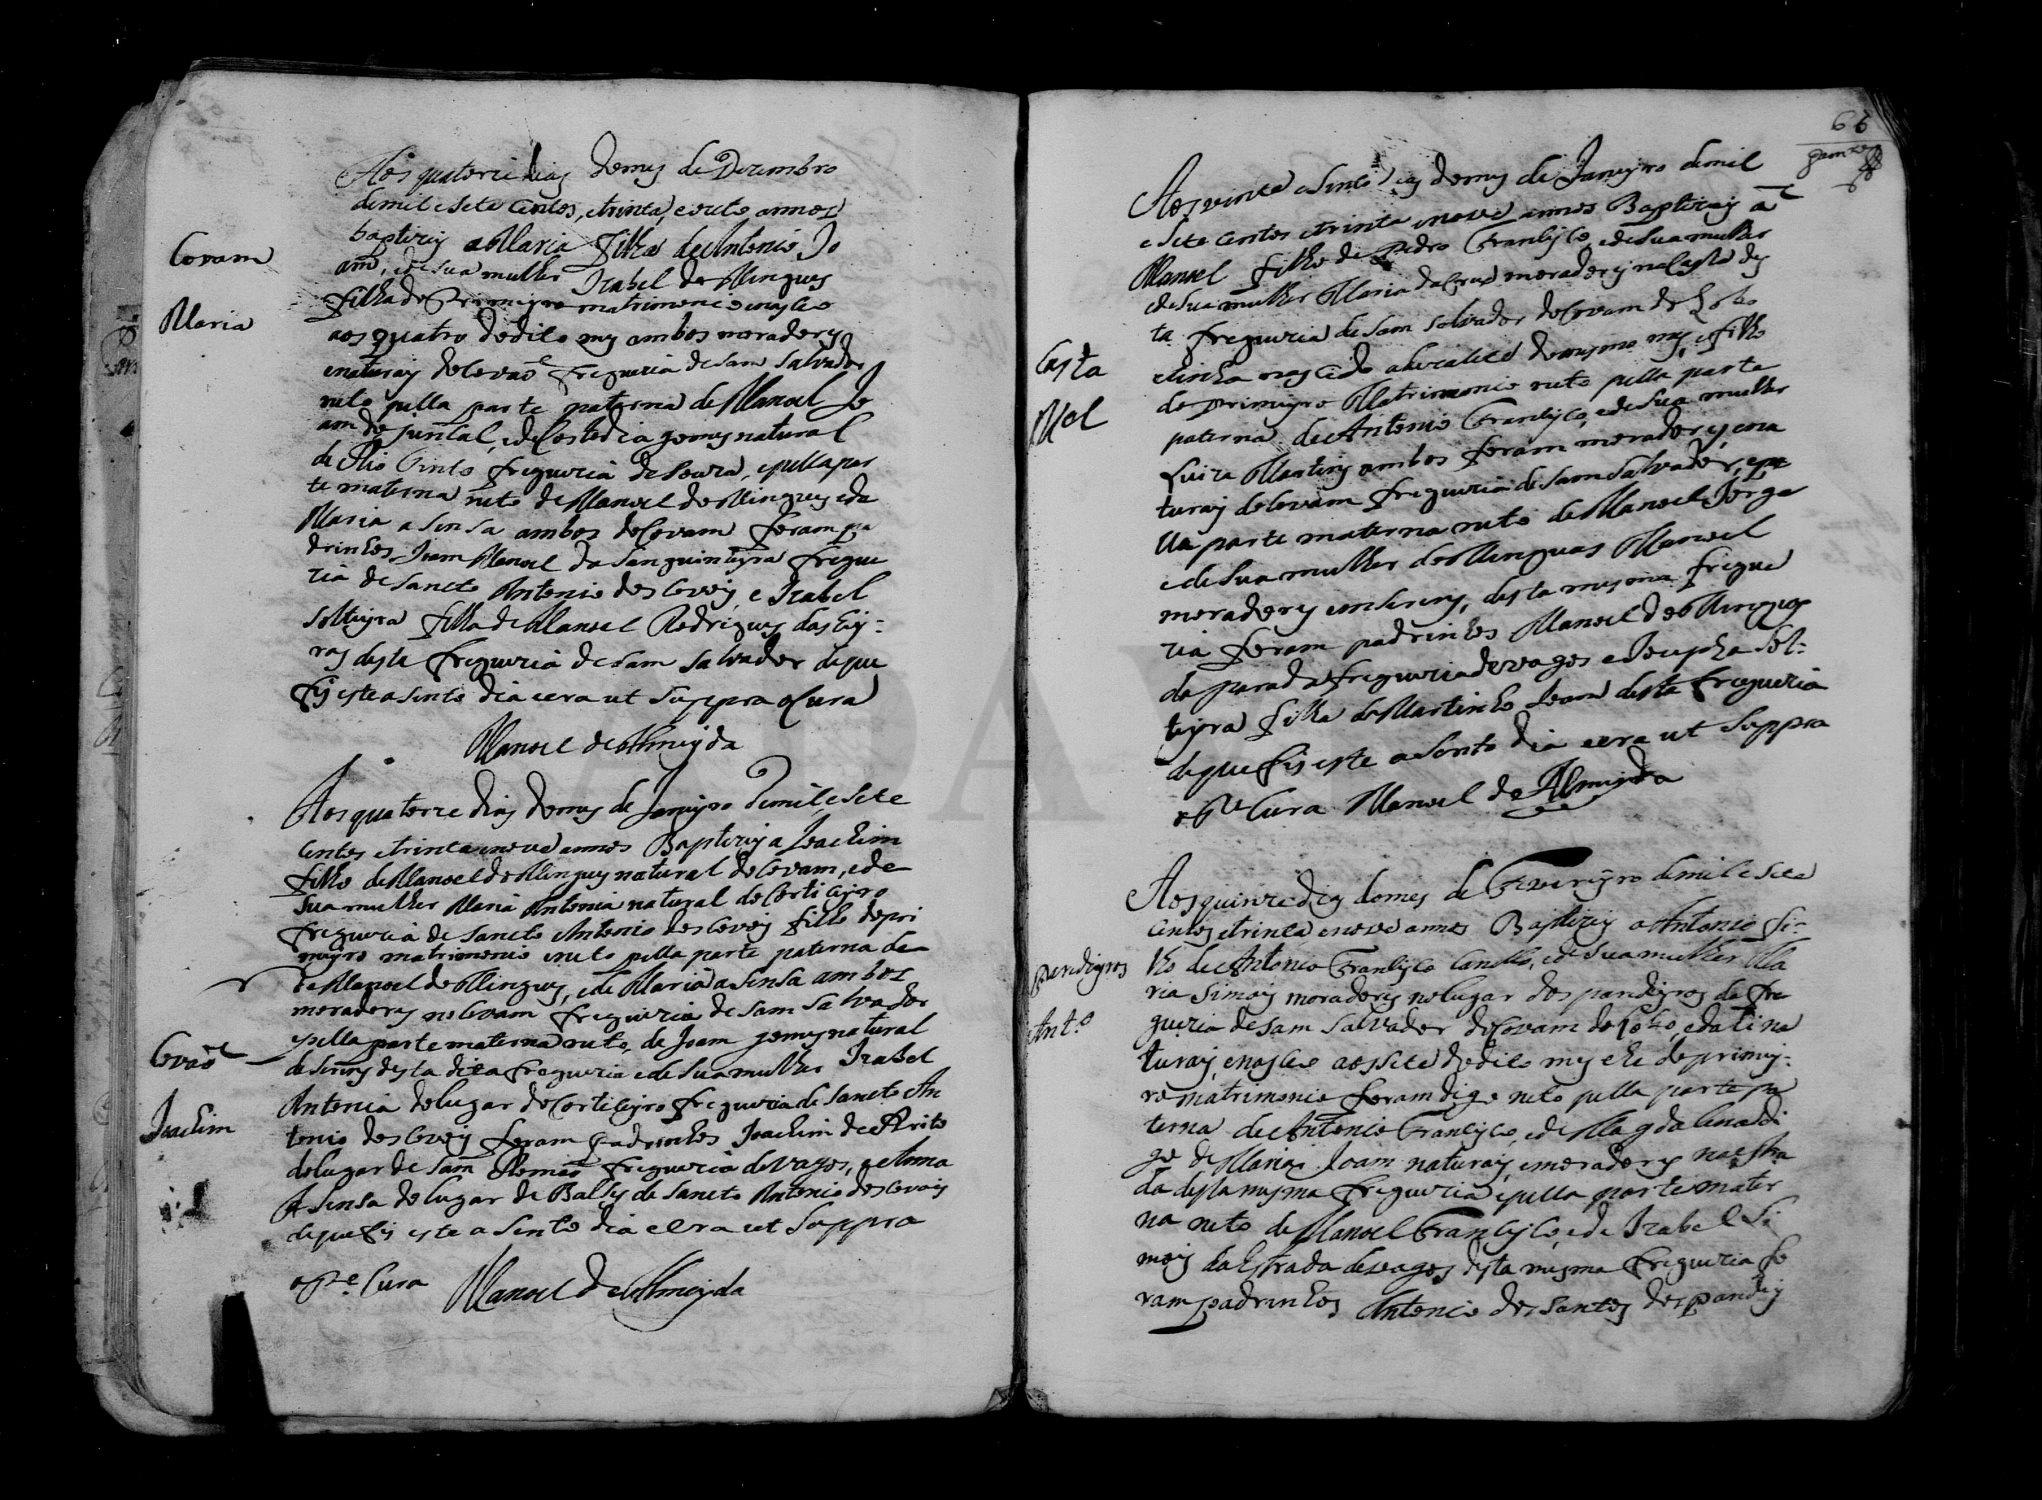 Aos quatorze dias do mes de Dezembro
de mil e sete centos, e trinta, e outo annos
baptizei a Maria filha de Antonio Jo
am, e de sua mulher Izabel do Mingues
filha do Primeyro matrimonio nasceo
aos quatro do dito mes ambos moradores
e naturais do Covaõ freguezia de Sam Salvador
neto pella parte paterna de Manoel Jo
am do Juncal, e de Costodia gomes natural
de Rio tinto freguezia de Souza, e pella par
te materna neto de Manoel do Mingues e de
Maria a Sensa ambos do Covam foram pa
drinhos Joam Manoel da Sanguinheyra fregue
zia de Sancto Antonio dos Covois e Izabel
Solteyra filha de Manoel Rodrigues das Ey-
ras desta freguezia de Sam Salvador de que
fis este a sento dia e era ut Suppra o Cura
Manoel de Almeyda
Covam
Maria
Aos quatorze dias do mes de Janeyro de mil e sete
centos e trinta e nove annos Baptizei a Joachim
filho de Manoel do Mingues natural do Covam, e de
sua mulher Maria Antonia natural do Corticeyro
freguezia de Sancto Antonio dos Covois filho do pri
meyro matrimonio neto pella parte paterna de
de Manoel do Mingues, e de Maria a Sensa ambos
moradores no Covam freguezia de Sam Salvador
e pella parte materna neto, de Joam gomes natural
de desta dita freguezia e de sua mulher Izabel
Antonia do lugar do Corticeyro freguezia de Sancto An
tonio dos Covois foram padrinhos Joachim de Brito
do lugar de Sam Romaõ freguezia de Vagos, e Anna
A Sensa do lugar de Sancto Antonio dos Covois
de que fis este a sento dia e era ut Suppra
o P.e Cura Manoel de Almeyda
Covaõ
Joachim
66
Aos vinte e sinco dias do mes de Janeyro de mil
e sete centos e trinta e nove annos Baptizei a
Manoel filho de Pedro Francisco, e de sua mulher
e de sua mulher Maria da Cruz moradores na Casta des
ta freguezia de Sam Salvador do Covam do Lobo
tinha nascido a do mesmo mes, e filho
do primeyro Matrimonio neto pella parte
paterna de Antonio Francisco, e de sua mulher
Luiza Martins ambos foram moradores, e na
turais do Covam freguezia de Sam Salvador, e pe
lla parte materna neto de Manoel Jorge
e de sua mulher do Mingues Manoel
moradores em desta mesma fregue
zia foram padrinhos Manoel do Mingues
da parada freguezia de Vagos e Jozepha Sol-
teyra filha de Martinho Joam desta freguezia
de que fis este a sento dia e era ut Suppra
o P.e Cura Manoel de Almeyda
Casta
M.el
Aos quinze dias do mes de Fevereyro de mil e sete
centos e trinta e nove annos Baptizei a Antonio fi-
lho de Antonio Francisco, e de sua mulher Ma
ria Simois moradores no lugar dos pandeyros da fre
guezia de Sam Salvador do Covam do Lobo, e dali na
turais, e nasceo aos sete do dito mes e he do primey-
ro matrimonio foram digo neto pella parte pa
terna de Antonio Francisco, e de Magdalena di
go de Maria Joam naturais, e moradores na estra
da desta mesma freguezia, e pella parte mater
na neto de Manoel Francisco, e de Izabel Si
mois da Estrada de Vagos desta mesma freguezia fo
ram padrinhos Antonio dos Santos dos pandey
Pandeyros
Ant.o